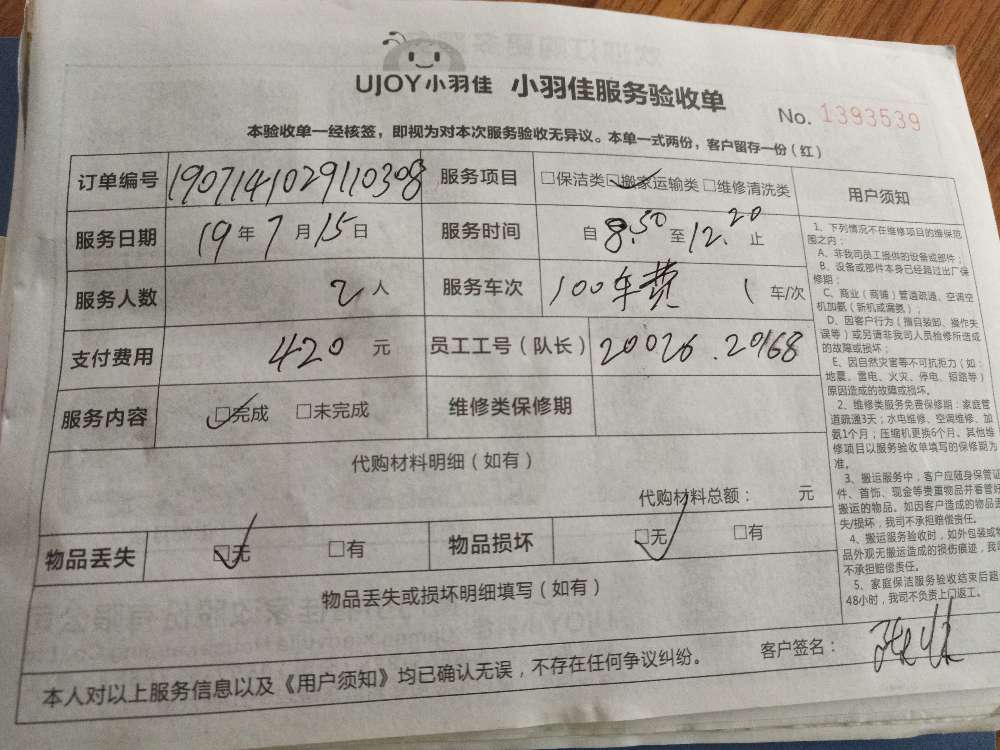 UJOY小羽佳 小羽佳服务验收单
No. 1393539
本验收单一经核签，即视为对本次服务验收无异议。本单一式两份，客户留存一份（红）
订单编号 1907141029110308 服务项目 □保洁类 ☑搬家运输类 □维修清洗类
服务日期 19年7月15日 服务时间 自8.50至12.20止
服务人数 2人 服务车次 100车费 1车/次
支付费用 420元 员工工号（队长） 20026.20168
服务内容 ☑完成 □未完成 维修类保修期
代购材料明细（如有）
代购材料总额： 元
物品丢失 ☑无 □有 物品损坏 ☑无 □有
物品丢失或损坏明细填写（如有）
本人对以上服务信息以及《用户须知》均已确认无误，不存在任何争议纠纷。 客户签名：
用户须知
1、下列情况不在维修项目的维保范
围之内：
A、非我司员工提供的设备或部件；
B、设备或部件本身已经超过出厂保
修期；
C、商业（商铺）管道疏通、空调空
机加氨（新机或漏氨）；
D、因客户行为（擅自装卸、操作失
误等）或另请非我司人员检修所造成
的故障或损坏；
E、因自然灾害等不可抗拒力（如：
地震、雷电、火灾、停电、短路等）
原因造成的故障或损坏。
2、维修类服务免费保修期：家庭管
道疏通3天；水电维修、空调维修、加
氨1个月；压缩机更换6个月。其他维
修项目以服务验收单填写的保修期为
准。
3、搬运服务中，客户应随身保管证
件、首饰、现金等贵重物品并看管好
搬运的物品。如因客户造成的物品丢
失/损坏，我司不承担赔偿责任。
4、搬运服务验收时，如外包装或物
品外观无搬运造成的损伤痕迹，我司
不承担赔偿责任。
5、家庭保洁服务验收结束后超
48小时，我司不负责上门返工。